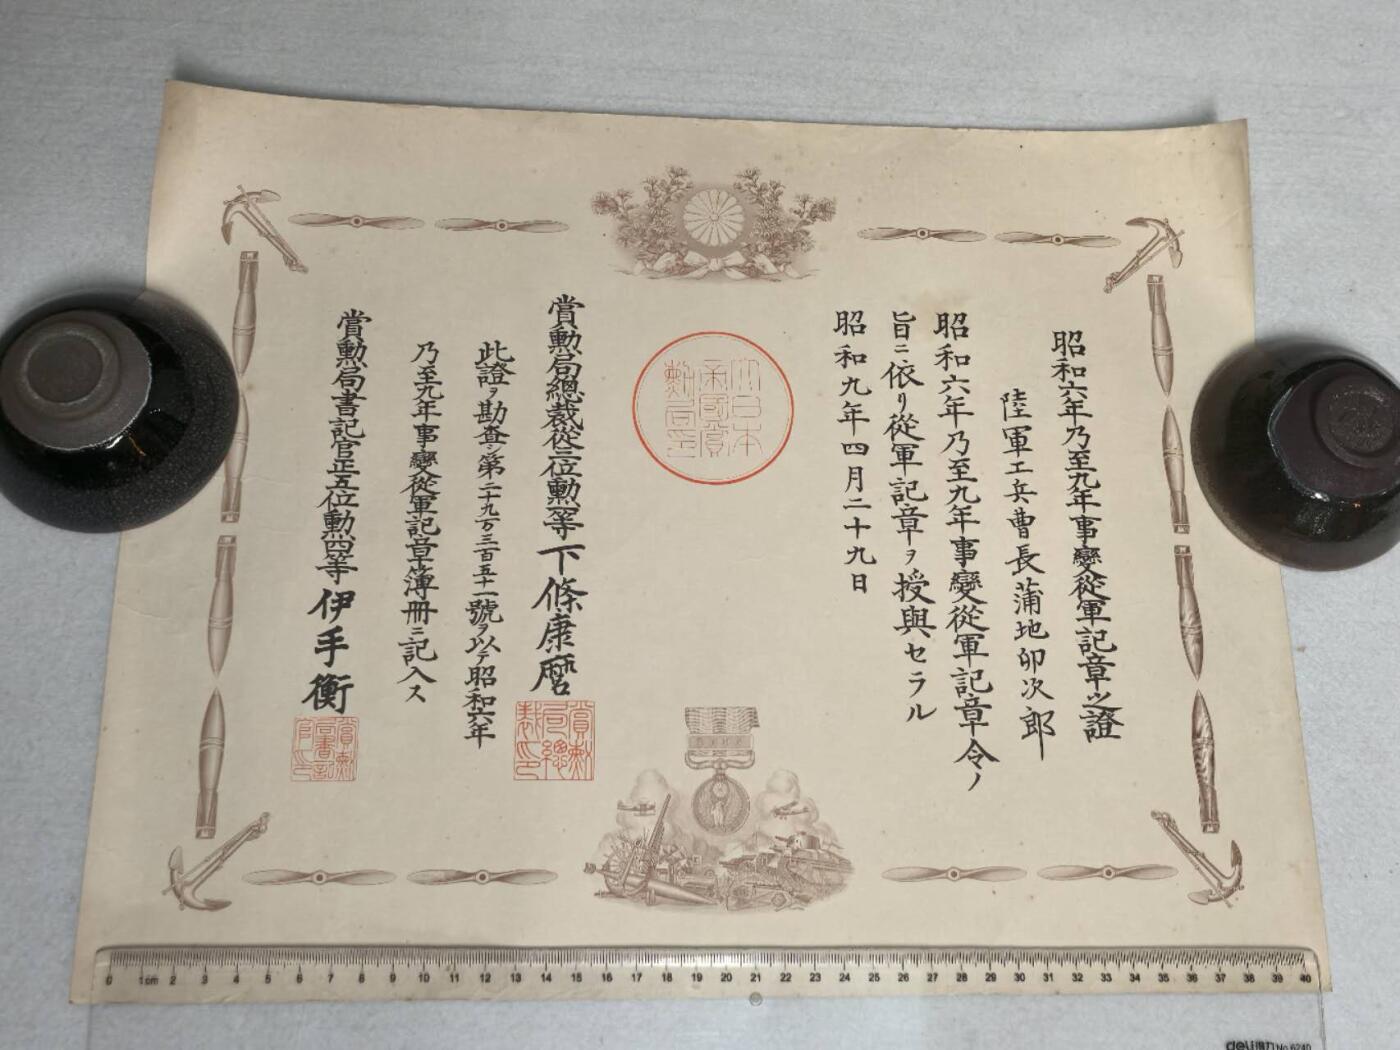 昭和六年乃至九年事變從軍記章之證
陸軍工兵曹長蒲地卯次郎
昭和六年乃至九年事變從軍記章令ノ
旨ニ依リ從軍記章ヲ授與セラル
昭和九年四月二十九日
大日本
帝國賞
勲局印
賞勲局總裁從三位勲一等下條康麿
賞勲
局總
裁印
此證ヲ勘査シ第二十九万三百五十一號ヲ以テ昭和六年
乃至九年事變從軍記章簿冊ニ記入ス
賞勲局書記官正五位勲四等伊手衡
賞勲
局書記
官印
0 1cm 2 3 4 5 6 7 8 9 10 11 12 13 14 15 16 17 18 19 20 21 22 23 24 25 26 27 28 29 30 31 32 33 34 35 36 37 38 39 40
deli得力 No.6240